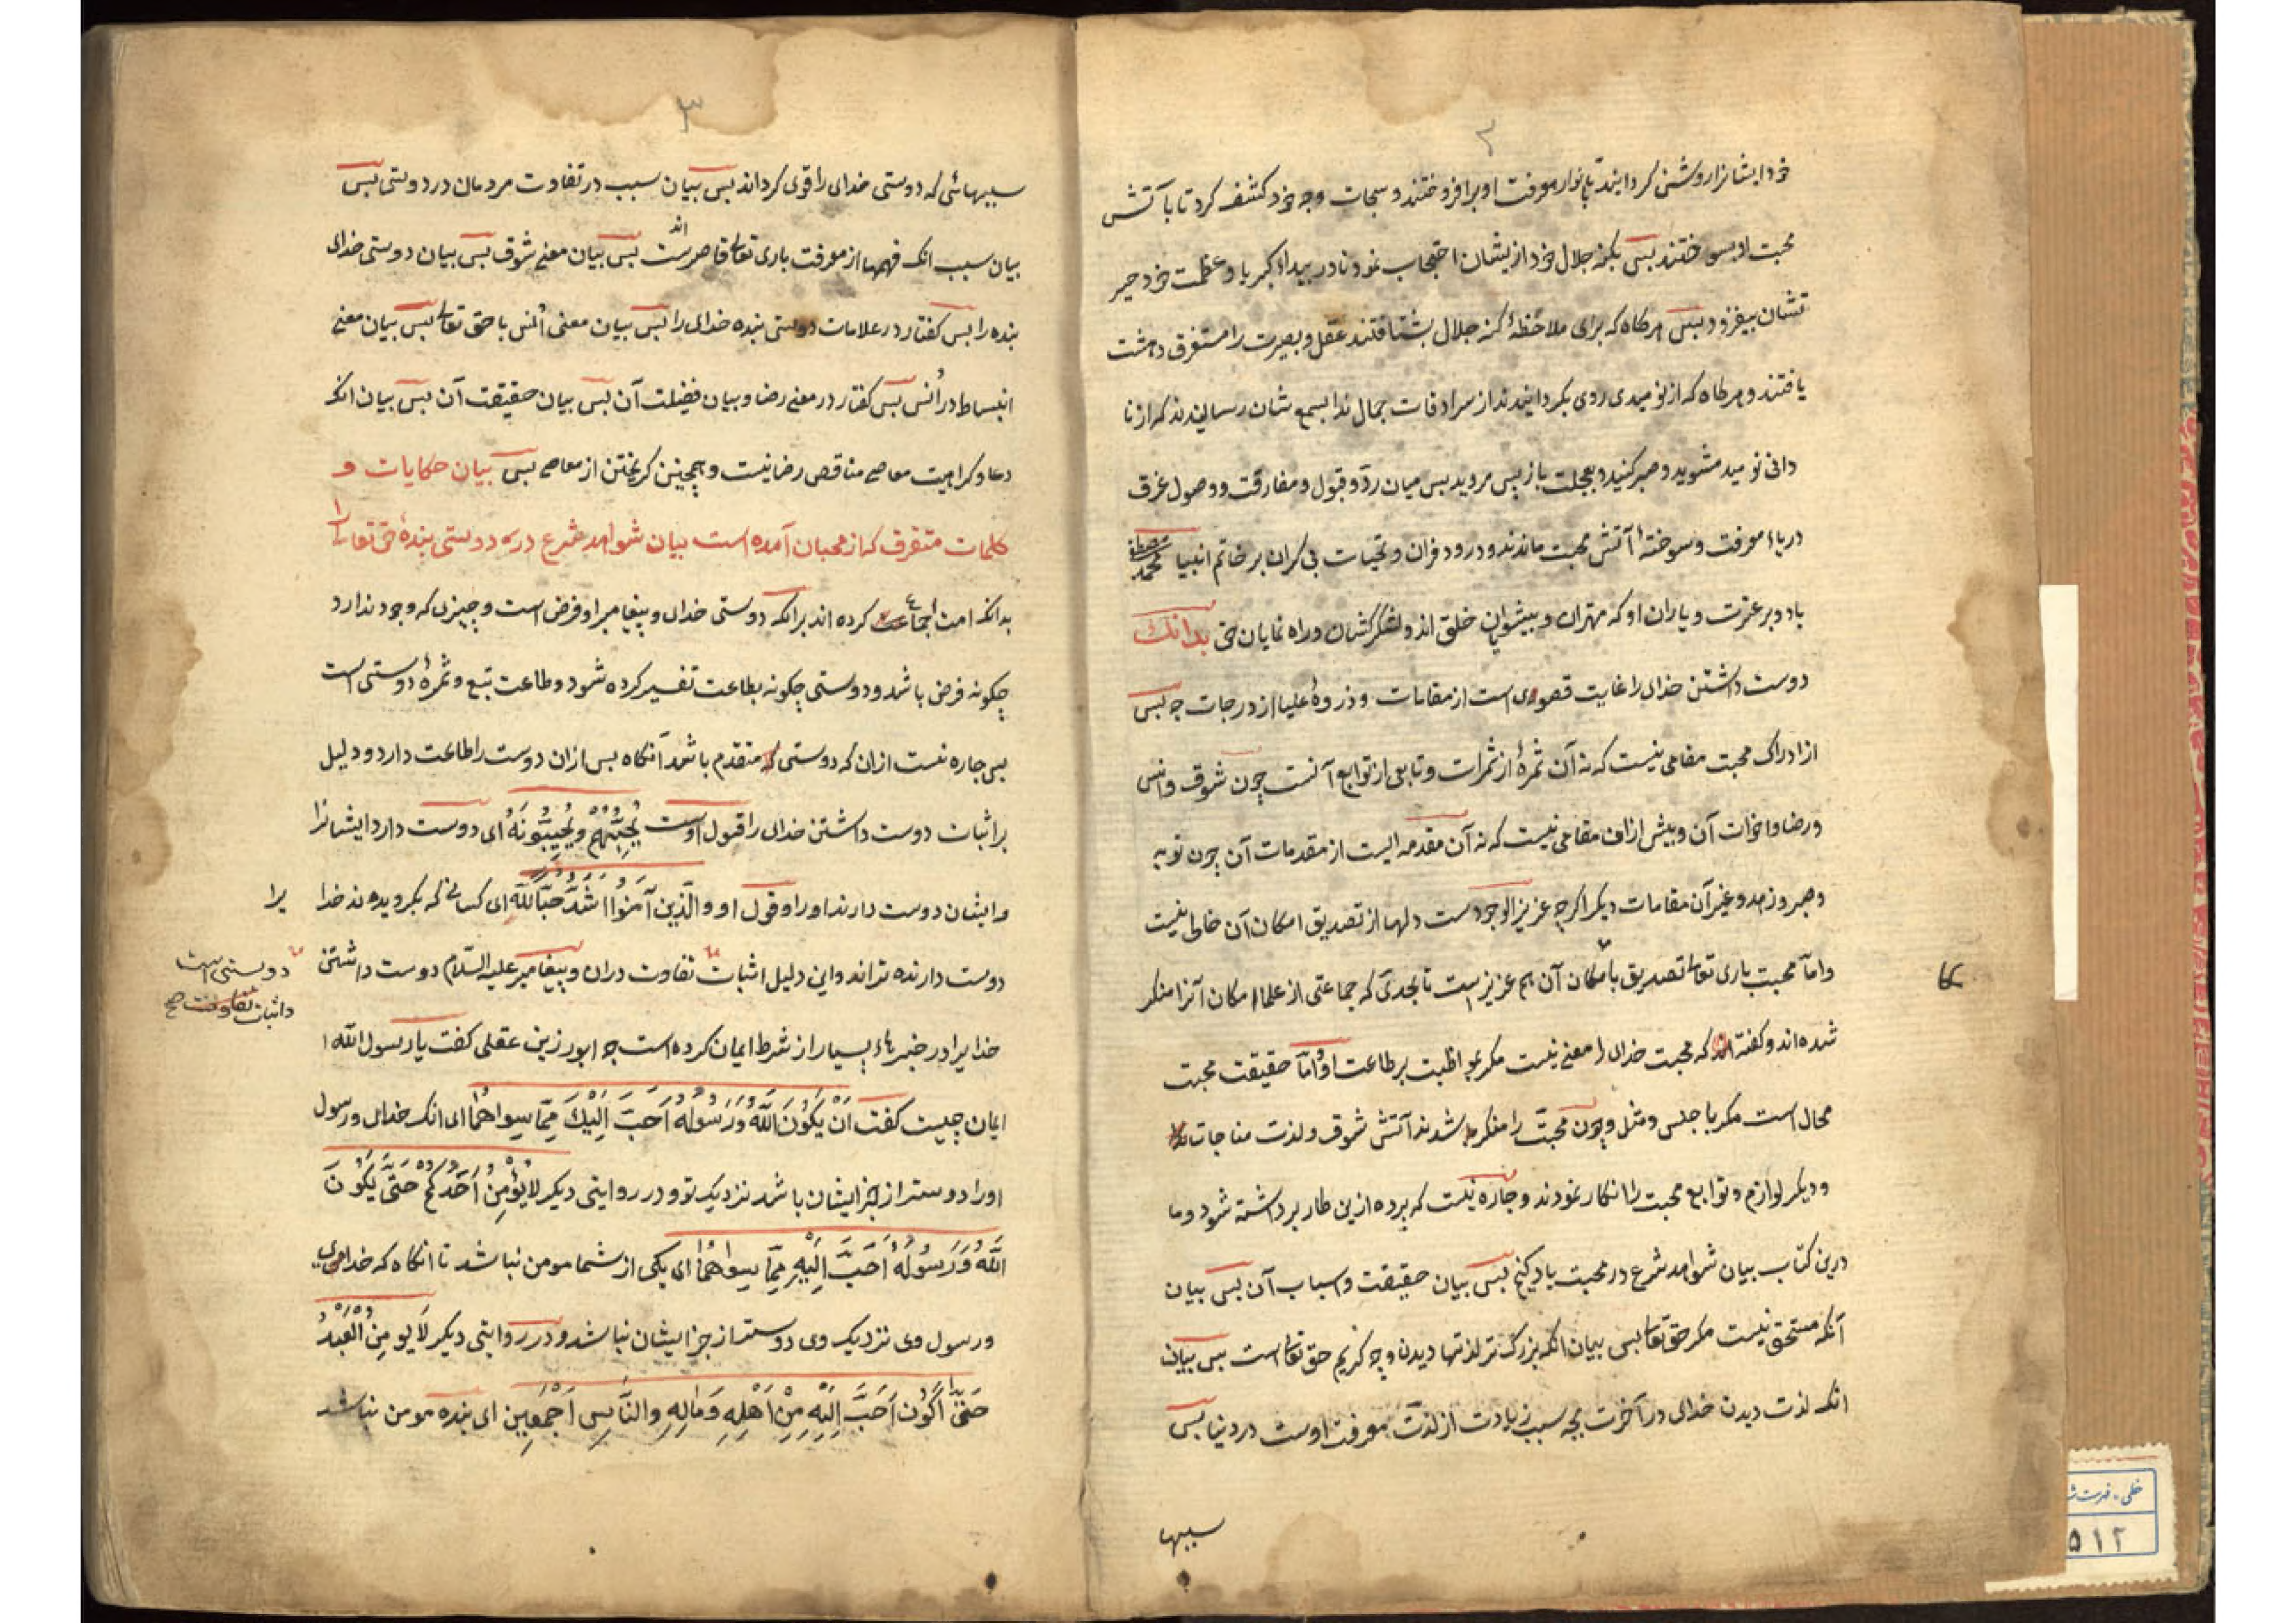 ۲
خود ایشانرا روشن کردانید تا بانوار معرفت او برافروختند و سبحات وجه خود کشف کرد تا بآتش
محبت او بسوختند بس بکنه جلال خود از یشان احتجاب نمود تا در بیداء کبریا و عظمت خود حیر
تشان بیفزود بس هرکاه که برای ملاحظهٔ کنه جلال بشتافتند عقل و بصیرت را مستغرق دهشت
یافتند و هرکاه که از نومیدی روی بکردانیدند از سرادقات جمال ندا بسمع شان رسانیدند که از نا
دانی نومید مشوید و صبر کنید و بعجلت باز پس مروید بس میان ردّ و قبول و مفارقت و وصول غرق
دریاء معرفت و سوختهٔ آتش محبت ماندند و درود فراوان و تحیات بی کران بر خاتم انبیا محمد مصطفی
باد و بر عترت و یاران او که مهتران و بیشوایان خلق اند و لشکرکشان و راه نمایان حق بدانک
دوست داشتن خدای را غایت قصوی است از مقامات و ذروهٔ علیا از درجات چه بس
از ادراک محبت مقامی نیست که نه آن ثمرهٔ از ثمرات و تابعی از توابع آنست چون شوق و انس
و رضا و اخوات آن و بیش ازان مقامی نیست که نه آن مقدمه ایست از مقدمات آن چون توبه
و صبر و زهد و غیر آن مقامات دیکر اکرچه عزیز الوجودست دلها از تصدیق امکان آن خالی نیست
و امّا محبت باری تعالی تصدیق بامکان آن هم عزیز است تا بحدی که جماعتی از علما امکان آنرا منکر
شده اند و کفته اند که محبت خدای را معنی نیست مکر مواظبت بر طاعت او و امّا حقیقت محبت
محال است مکر با جنس و مثل و چون محبّت را منکر شدند آتش شوق و لذت مناجات
و دیکر لوازم و توابع محبت را انکار نمودند و چاره نیست که برده ازین کار برداشته شود و ما
درین کتاب بیان شواهد شرع در محبت یاد کنیم بس بیان حقیقت و اسباب آن بس بیان
آنکه مستحق نیست مکر حق تعالی بس بیان انکه بزرک تر لذتها دیدن وجه کریم حق تعالی است بس بیان
انکه لذت دیدن خدای در آخرت بچه سبب زیادت از لذت معرفت اوست در دنیا بس
سببها
۳
سببهائی که دوستی خدای را قوی کرداند بس بیان سبب در تفاوت مردمان در دوستی بس
بیان سبب انک فهمها از معرفت باری تعالی قاصرست بس بیان معنی شوق بس بیان دوستی خدای
بنده را بس کفتار در علامات دوستی بنده خدای را بس بیان معنی اُنس با حق تعالی بس بیان معنی
انبساط در اُنس بس کفتار در معنی رضا و بیان فضیلت آن بس بیان حقیقت آن بس بیان انک
دعا و کراهیت معاصی مناقض رضا نیست و همچنین کریختن از معاصی بس بیان حکایات و
کلمات متفرق که از محبان آمده است بیان شواهد شرع در دوستی بندهٔ حق تعالی را
بدانکه امت اجماع کرده اند برانکه دوستی خدای و بیغامبر او فرض است و چیزی که وجود ندارد
چکونه فرض باشد و دوستی چکونه بطاعت تفسیر کرده شود و طاعت تبع و ثمرهٔ دوستی است
بس چاره نیست ازان که دوستی متقدم باشد آنکاه بس ازان دوست را طاعت دارد و دلیل
بر اثبات دوست داشتن خدای را قول اوست یُحِبُّهُمْ وَیُحِبُّونَهُ ای دوست دارد ایشانرا
و ایشان دوست دارند او را و قول او وَالَّذِینَ آمَنُوا اَشَدُّ حُبًّا لِلّٰهِ ای کسانی که بکرویدهاند خدا
یرا
دوست دارنده تراند و این دلیل اثبات تفاوت دران و بیغامبر علیه السّلام دوست داشتن
دوستی است
و اثبات تفاوت صح
خدایرا در خبرهاء بسیار از شرط ایمان کرده است چه ابو رزین عقلی کفت یا رسول الله
ایمان چیست کفت اَنْ یَکُونَ اللّٰهُ وَرَسُولُهُ اَحَبَّ اِلَیْکَ مِمَّا سِوَاهُمَا ای انک خدای و رسول
او را دوستر از جز ایشان باشد نزدیک تو و در روایتی دیکر لَا یُؤْمِنُ اَحَدُکُمْ حَتّٰی یَکُونَ
اللّٰهُ وَرَسُولُهُ اَحَبَّ اِلَیْهِ مِمَّا سِوَاهُمَا ای یکی از شما مومن نباشد تا انکاه که خدای
و رسول وی نزدیک وی دوستر از جز ایشان نباشد و در روایتی دیکر لَا یُومِنُ الْعَبْدُ
حَتّٰی اَکُونَ اَحَبَّ اِلَیْهِ مِنْ اَهْلِهِ وَمَالِهِ وَالنَّاسِ اَجْمَعِینَ ای بنده مومن نباشد
خطی - فهرست
۵۱۲